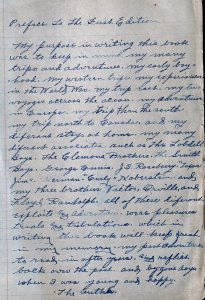 Preface To The First Edition
My purpose in writing this book
was to keep in mind my many
trips and adventures, my early boy-
hood, my western trips, my experiences
in the World War, my trip back, my two
voyages accross the ocean, my adventures
in Europe, my trip thru the south
my trip north to Canada, and my
diferent stay at home, my many
diferent associates, such as The Lobdell
Boys, The Clemons Brothers, The Smith
Boys, George Ennis,
and
my three brothers Victor Orville, and
Floyd Randolph, all of these diferent
exploits and adventures were pleasures
trials and tribulations, which in
writing this book will keep fresh
in my memory, my past adventures
to read in after years, and reflect
back over the past and bygone days
when I was young and happy.
The Author